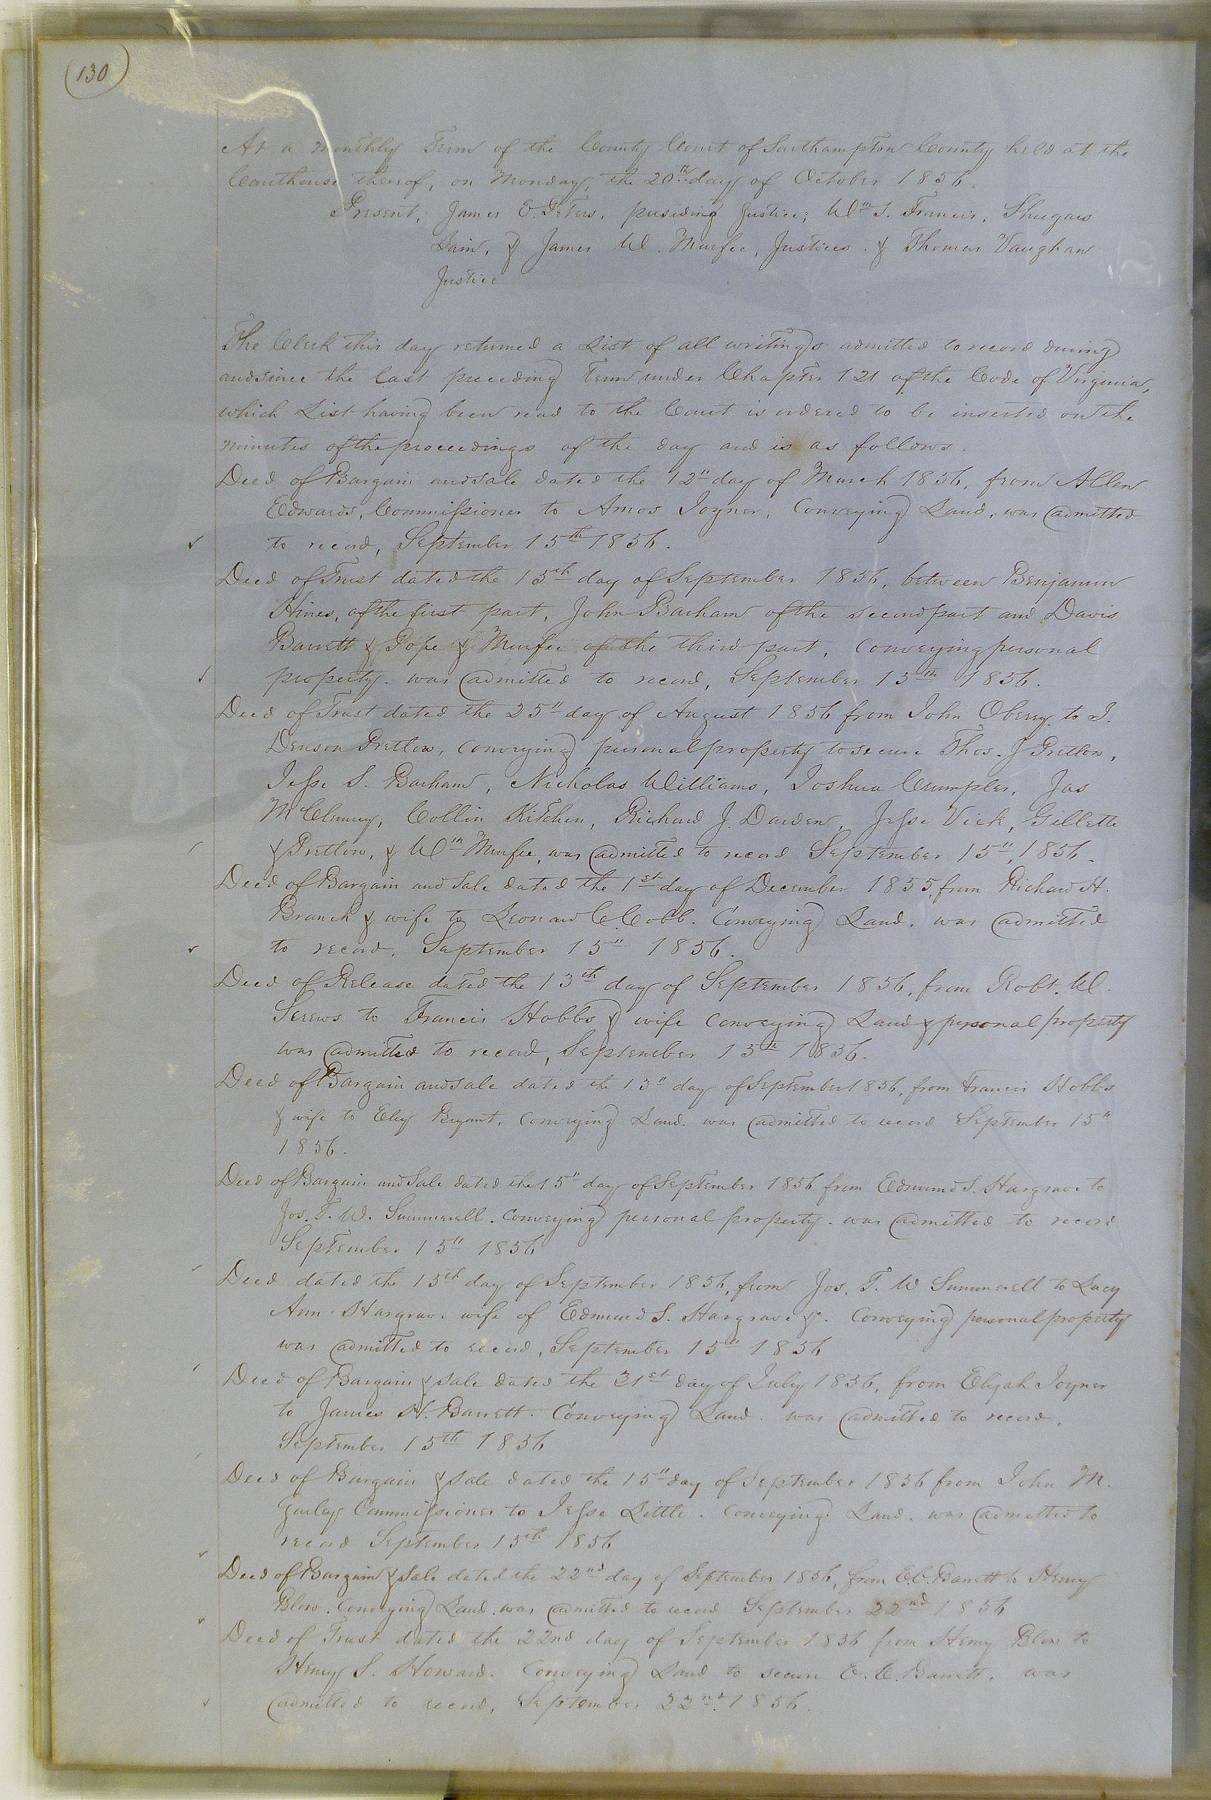 130
At a monthly Term of the County Court of Southampton County held at the
Courthouse thereof, on Monday, the 20th day of October 1856.
Present, James E. Peters, presiding Justice; Wm S. Francis, Shugars
Lain, & James W. Murfee, Justices. & Thomas Vaughan
Justice
The Clerk this day returned a List of all writings admitted to record during
and since the last preceding Term under Chapter 121 of the Code of Virginia,
which List having been read to the Court is ordered to be inserted on the
minutes of the proceedings of the day and is as follows.
Deed of Bargain and sale dated the 12" day of March 1856, from Allen
Edwards, Commissioner to Amos Joyner, Conveying Land, was admitted
to record, September 15th 1856.
Deed of Trust dated the 15th day of September 1856, between Benjamin
Hines, of the first part, John Barham of the second part and Davis
Barrett & Pope & Murfee of the third part, conveying personal
property. was admitted to record, September 15th 1856.
Deed of Trust dated the 25" day of August 1856 from John Oberry to J.
Denson Pretlow, conveying personal property to secure Thos. J Pretlow,
Jesse S. Barham, Nicholas Williams, Joshua Crumpler, Jas
McClenny, Collin Kitchen, Richard J. Darden, Jesse Vick, Gillette
& Pretlow, & Wm Murfee, was admitted to record September 15", 1856.
Deed of Bargain and sale dated the 1st day of December 1855, from Richard H.
Branch & wife to Leonard C. Cobb. Conveying Land. was admitted
to record, September 15" 1856.
Deed of Release dated the 13th day of September 1856, from Robt. W.
Screws to Francis Hobbs & wife Conveying Land & personal property
was admitted to record, September 15th 1856.
Deed of Bargain and sale dated the 13" day of September 1856, from Francis Hobbs
& wife to Eley Bryant, Conveying Land. was admitted to record September 15"
1856.
Deed of Bargain and Sale dated the 15" day of September 1856 from Edmund S. Hargrave to
Jos. T. W. Summerell. Conveying personal property. was admitted to record
September 15" 1856
Deed dated the 15th day of September 1856, from Jos. T. W Summerell to Lucy
Ann Hargrave wife of Edmund S. Hargrave &c. Conveying personal property
was admitted to record, September 15" 1856
Deed of Bargain & sale dated the 21st day of July 1856, from Elijah Joyner
to James H. Barrett. Conveying Land. was admitted to record,
September 15th 1856
Deed of Bargain & sale dated the 15" day of September 1856 from John M.
Gurley Commissioner to Jesse Little. Conveying Land. was admitted to
record September 15th 1856
Deed of Bargain & Sale dated the 22nd day of September 1856, from E.C. Barrett to Henry
Blow. Conveying Land. was admitted to record September 22nd 1856
Deed of Trust dated the 22nd day of September 1856 from Henry Blow to
Henry S. Howard. Conveying Land to secure E. C. Barrett. was
admitted to record, September 22nd 1856.